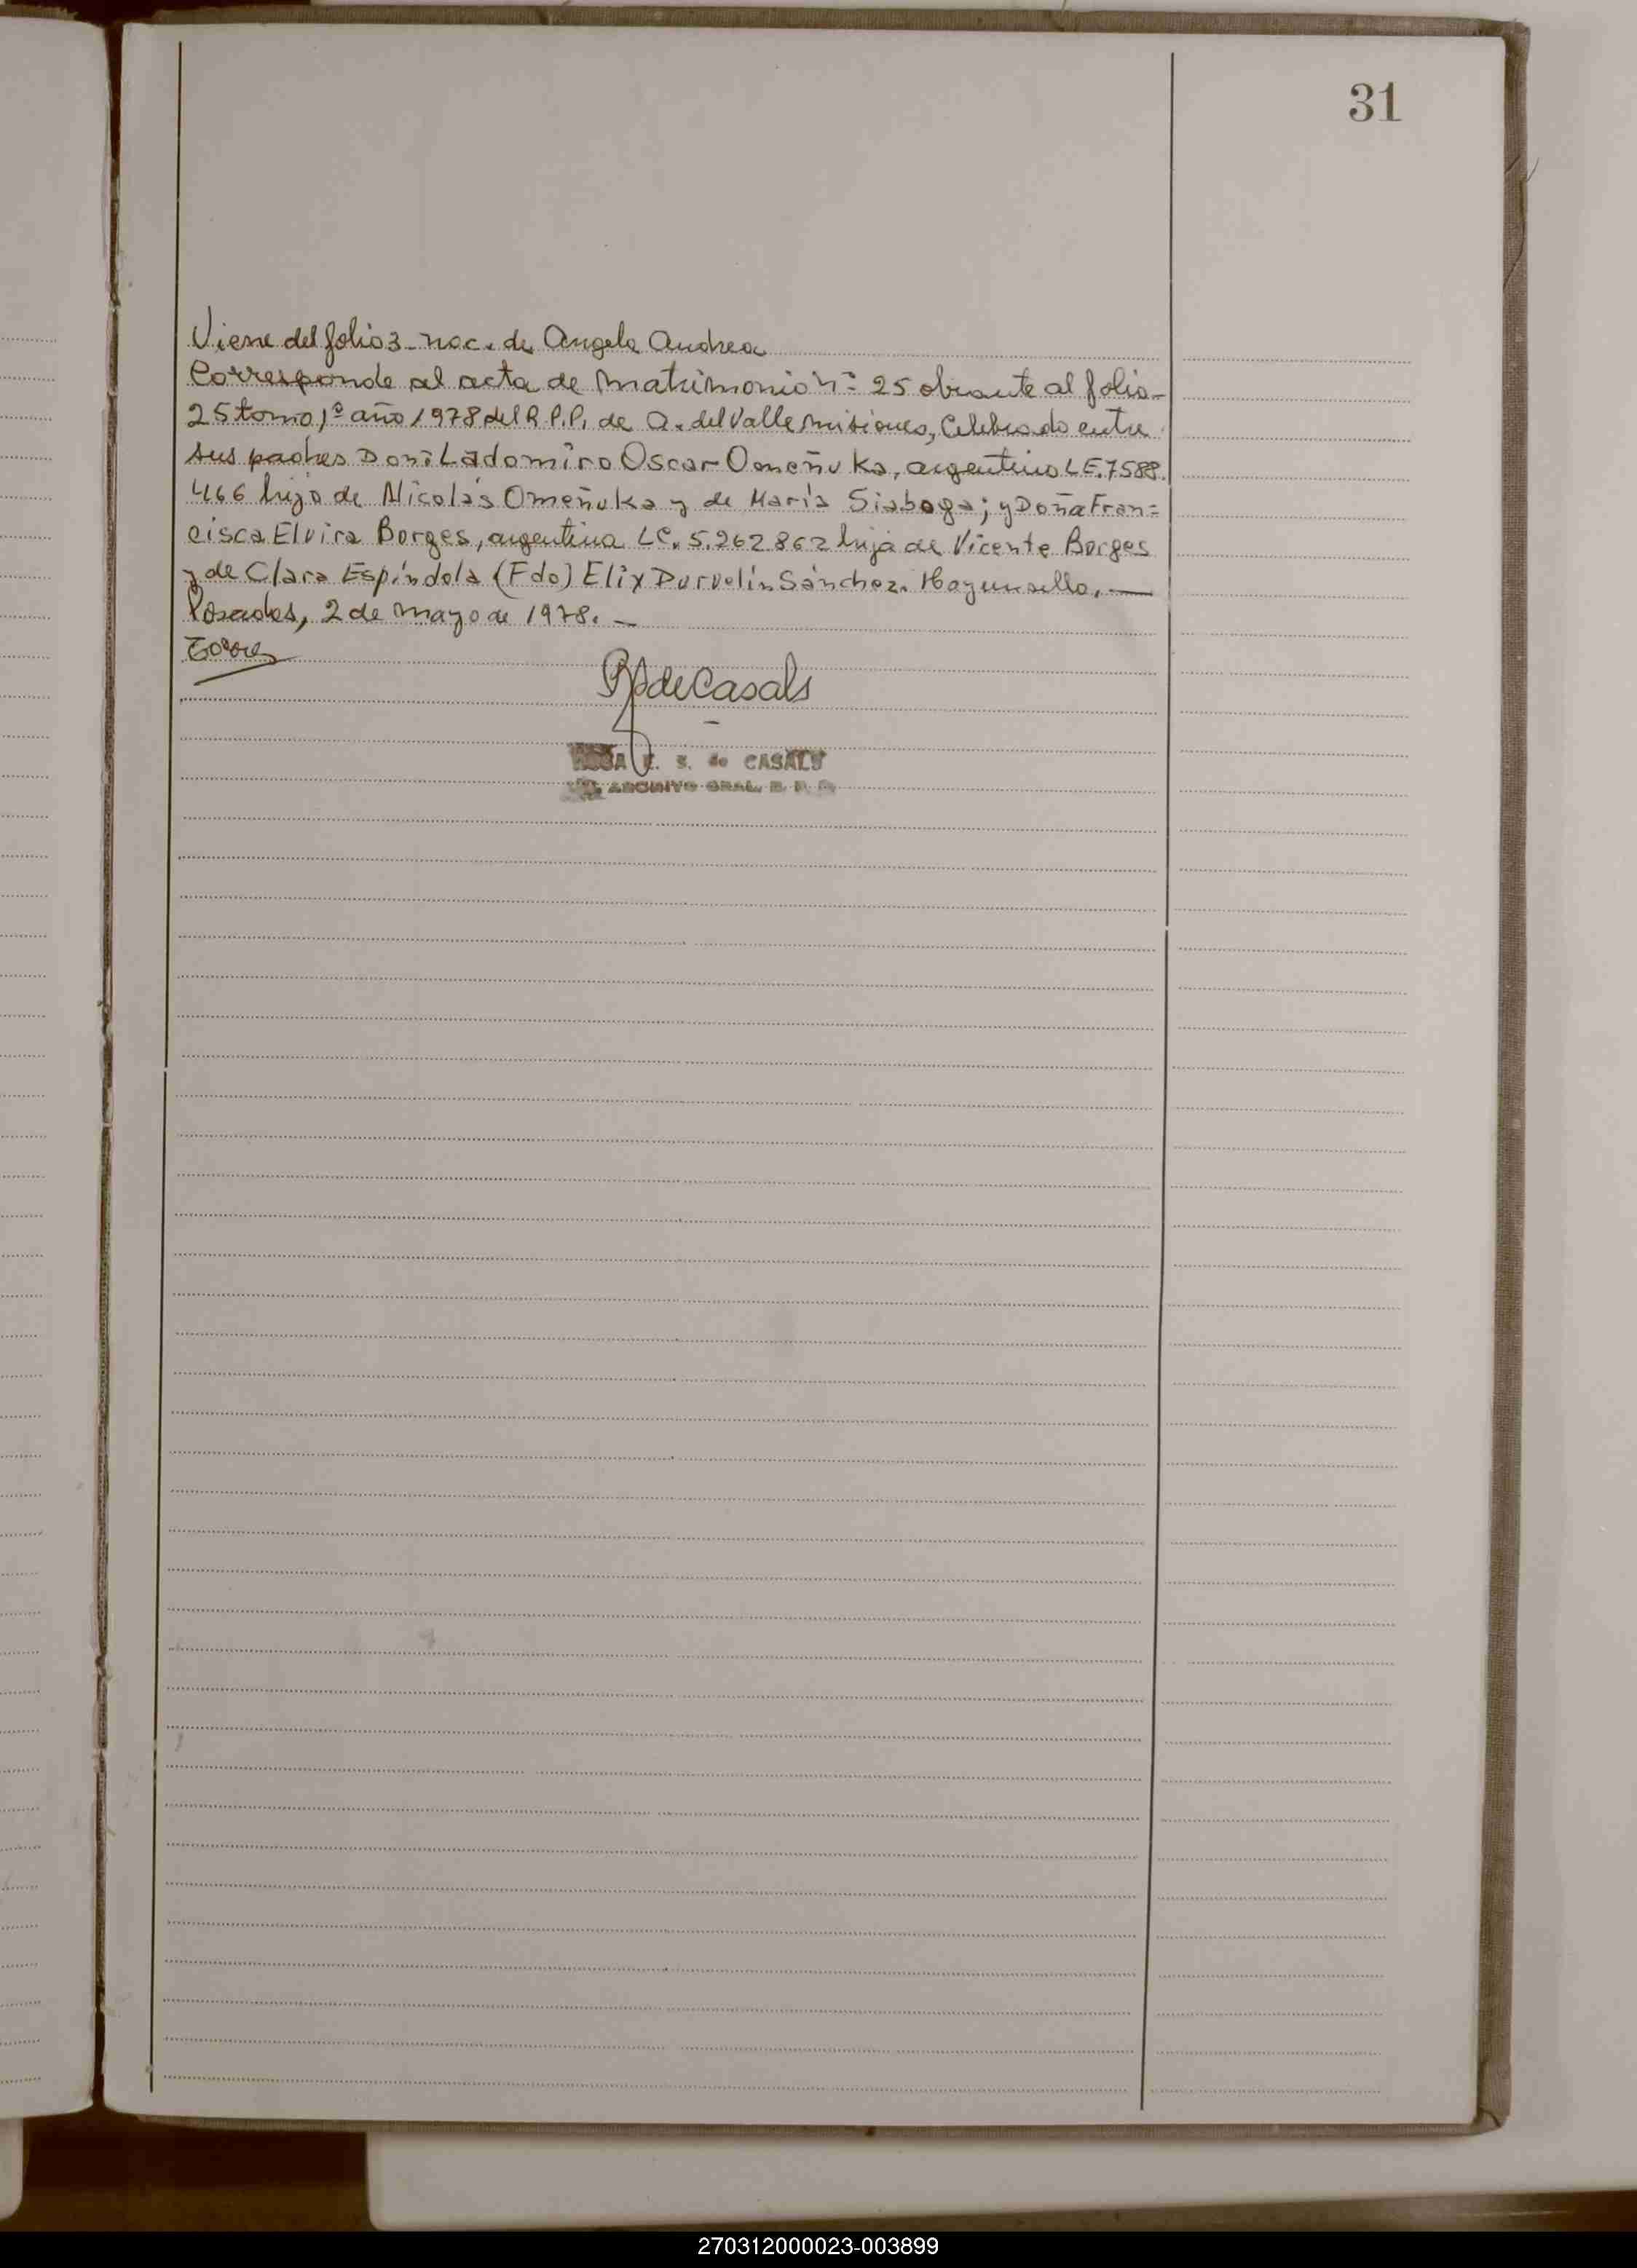 31
Viene del folio 3 - nac. de Angela Andrea
Corresponde al acta de matrimonio nº 25 obrante al folio
25 tomo 1º año 1978 del R.P.P. de A. del Valle Misiones, Celebrado entre
sus padres Don: Ladomiro Oscar Omeñuka, argentino L.E. 7588.
466 hijo de Nicolás Omeñuka y de María Siaboga; y Doña Fran=
cisca Elvira Borges, argentina LC. 5.262862 hija de Vicente Borges
y de Clara Espíndola (Fdo) Elix Durvelín Sánchez. Hay un sello. —
Posadas, 2 de mayo de 1978. —
Torres
R S de Casals
S. de CASALS
ARCHIVO GRAL. R. P. P.
270312000023-003899